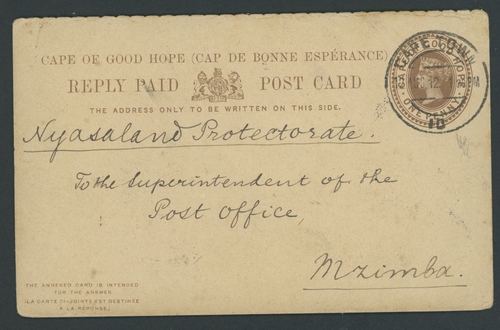 CAPE OF GOOD HOPE (CAP DE BONNE ESPÉRANCE)
REPLY PAID POST CARD
THE ADDRESS ONLY TO BE WRITTEN ON THIS SIDE.
CAPE TOWN
10
ONE PENNY
Nyasaland Protectorate.
To the Superintendent of the
Post Office,
Mzimba.
THE ANNEXED CARD IS INTENDED
FOR THE ANSWER.
(LA CARTE CI-JOINTE EST DESTINÉE
À LA RÉPONSE.)